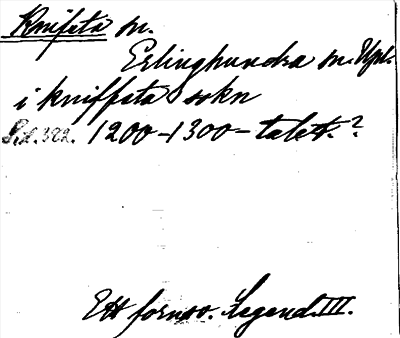 Knifsta sn.
Erlinghundra sn. Upl.
i kniffsta sokn
Sid. 322. 1200-1300-talet.?
Ett fornsv. Legend. III.